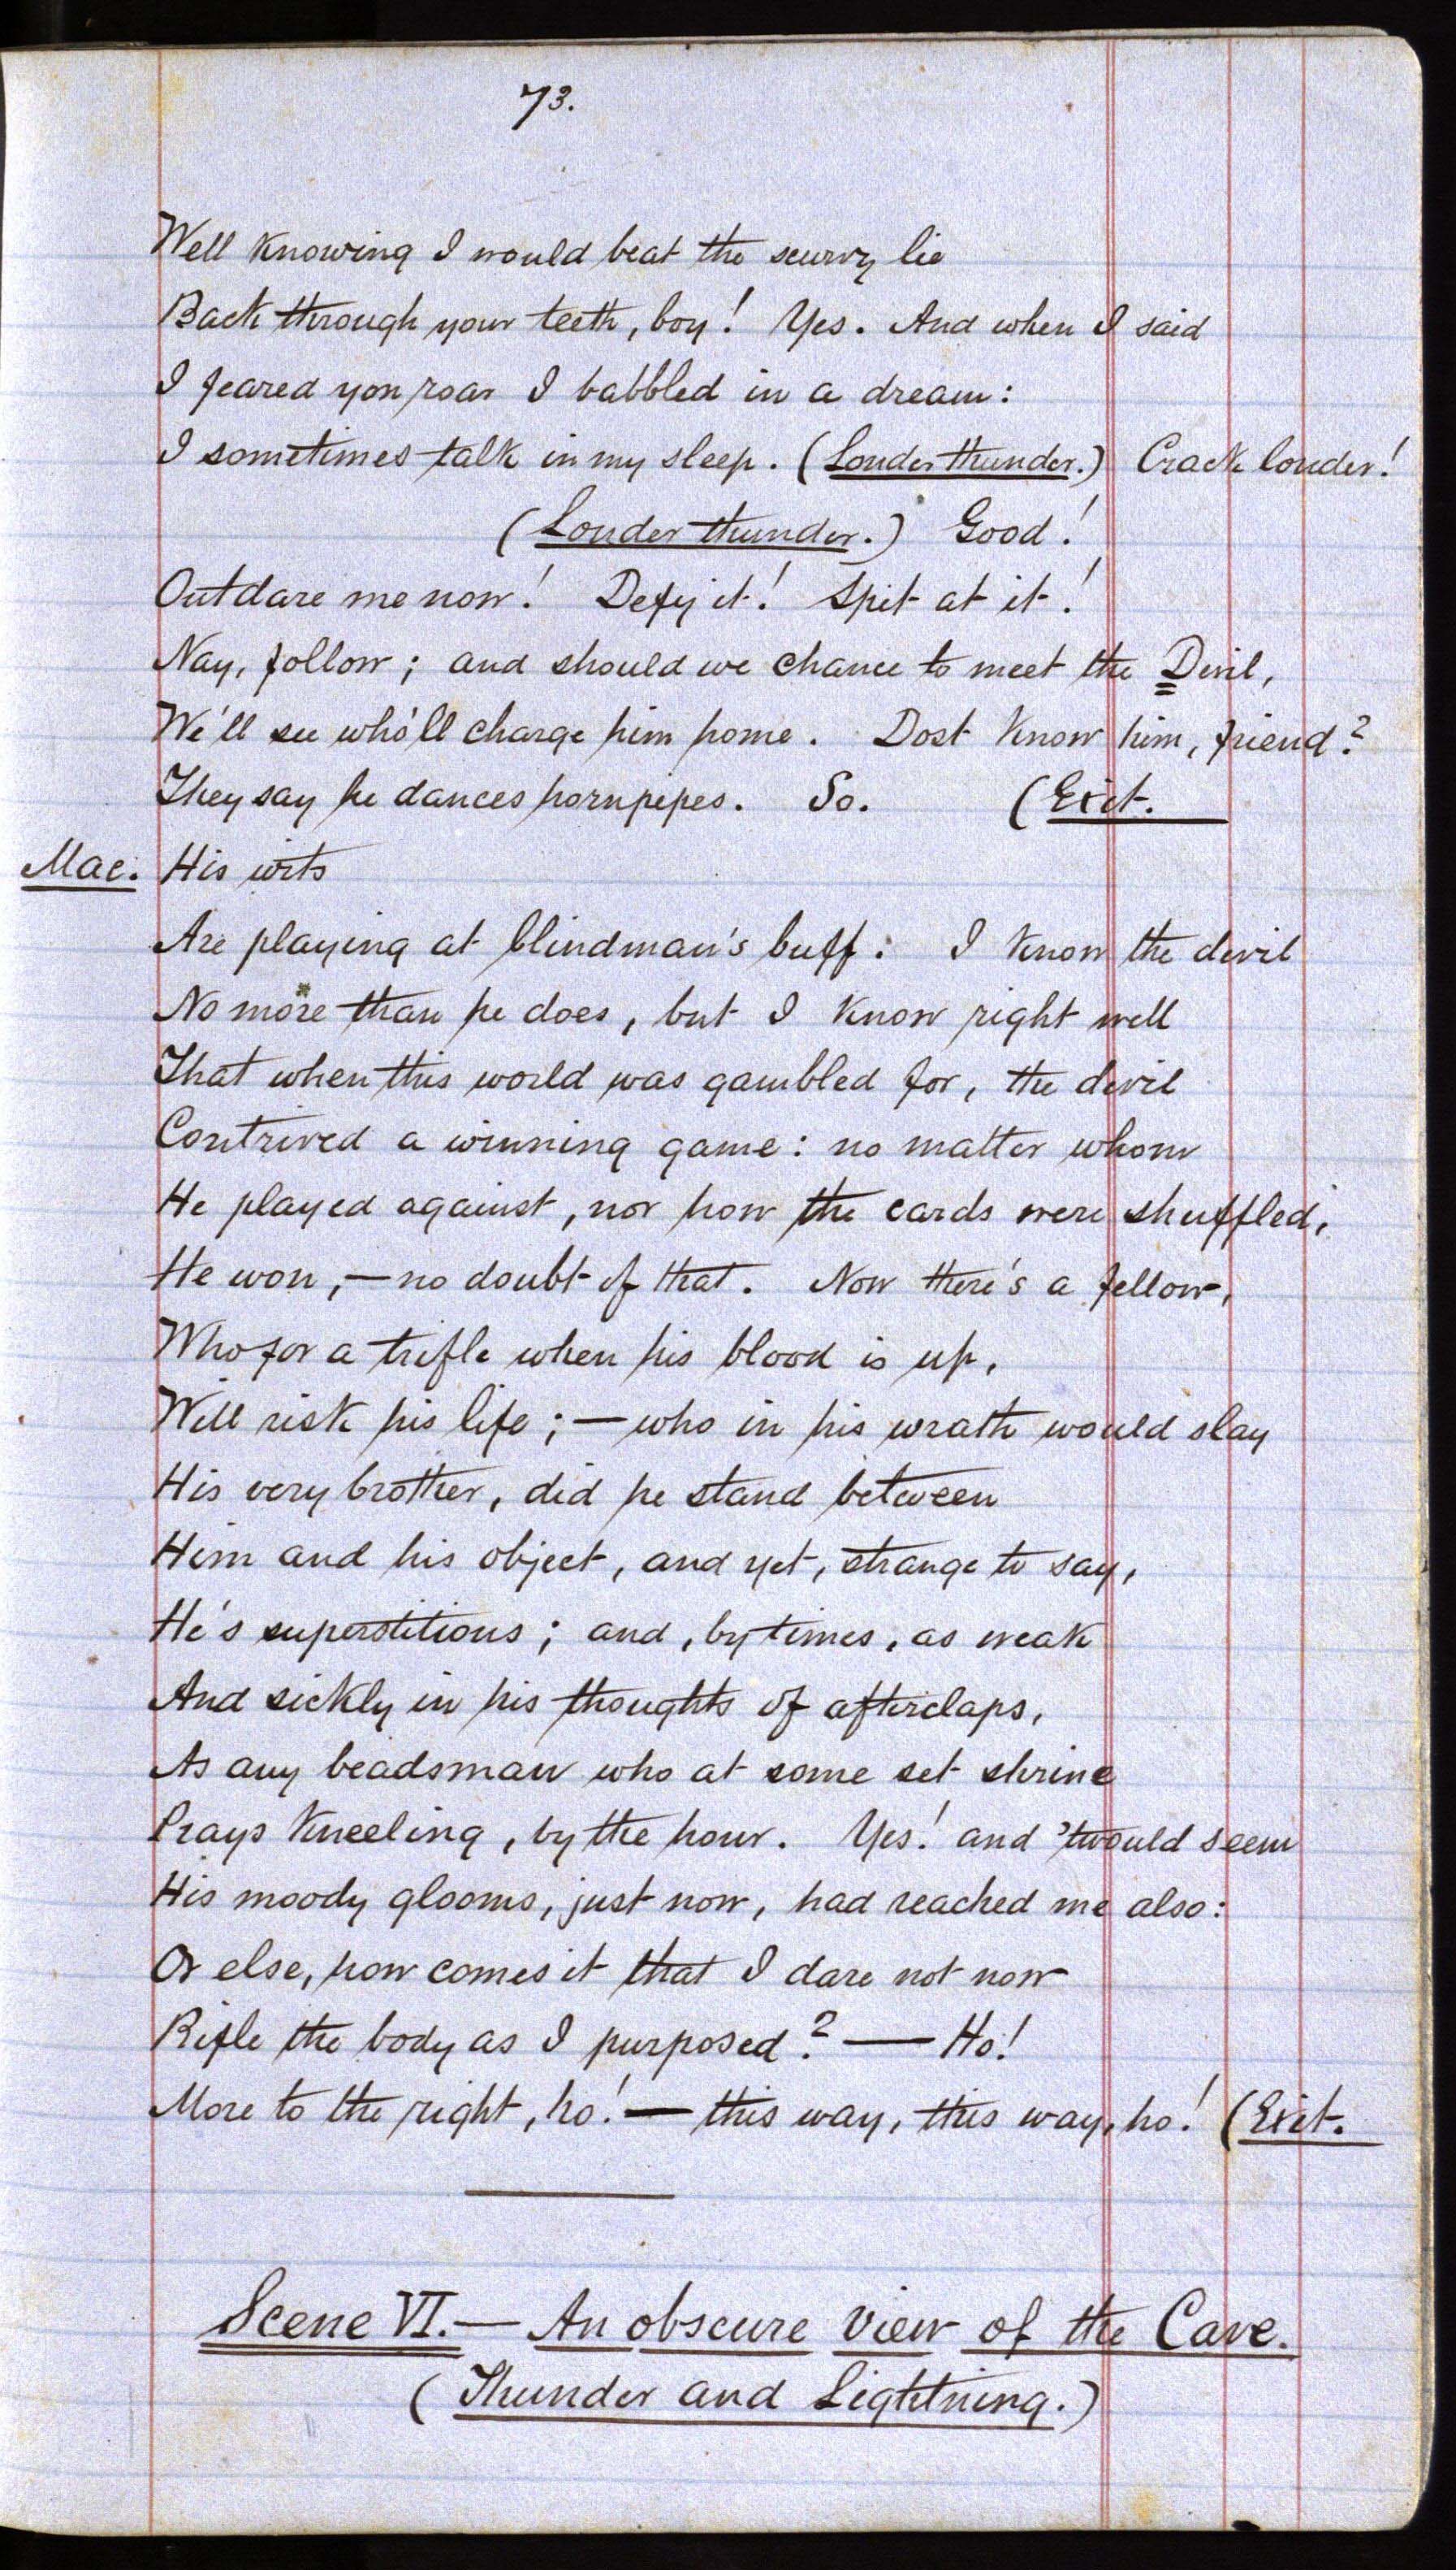 73.
Well knowing I would beat the scurvy lie
Back through your teeth, boy! Yes. And when I said
I feared yon roar I babbled in a dream:
I sometimes talk in my sleep. (Louder thunder.) Crack louder!
(Louder thunder.) Good!
Outdare me now! Defy it! Spit at it!
Nay, follow; and should we chance to meet the Devil,
We'll see who'll charge him home. Dost know him, friend?
They say he dances hornpipes. So. (Exit.
Mac. His wits
Are playing at blindman's buff. I know the devil
No more than he does, but I know right well
That when this world was gambled for, the devil
Contrived a winning game: no matter whom
He played against, nor how the cards were shuffled,
He won,—no doubt of that. Now there's a fellow,
Who for a trifle when his blood is up,
Will risk his life;—who in his wrath would slay
His very brother, did he stand between
Him and his object, and yet, strange to say,
He's superstitious; and, by times, as weak
And sickly in his thoughts of afterclaps,
As any beadsman who at some set shrine
Prays kneeling, by the hour. Yes! and 'twould seem
His moody glooms, just now, had reached me also:
Or else, how comes it that I dare not now
Rifle the body as I purposed?—Ho!
More to the right, ho!—this way, this way, ho! (Exit.
Scene VI.—An obscure view of the Cave.
(Thunder and Lightning.)